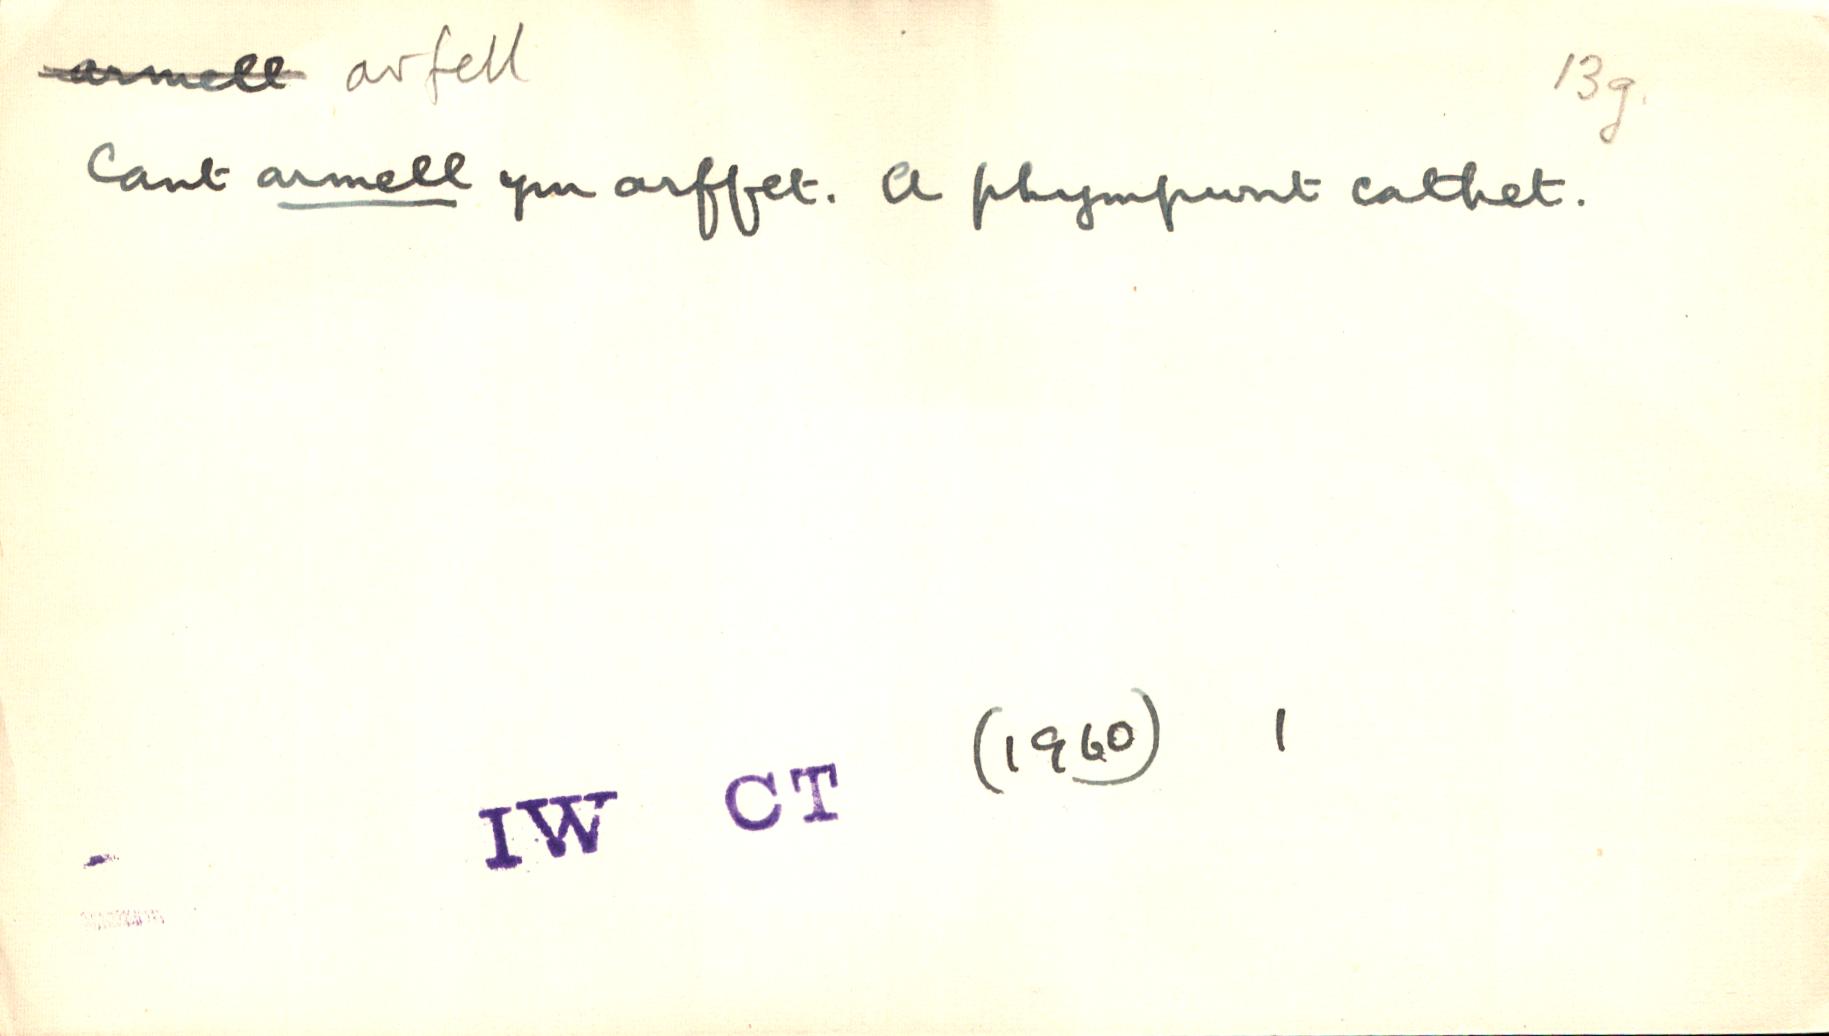 armell arfell 13g.
Cant armell ym arffet. A phympwnt cathet.
IW CT (1960) 1